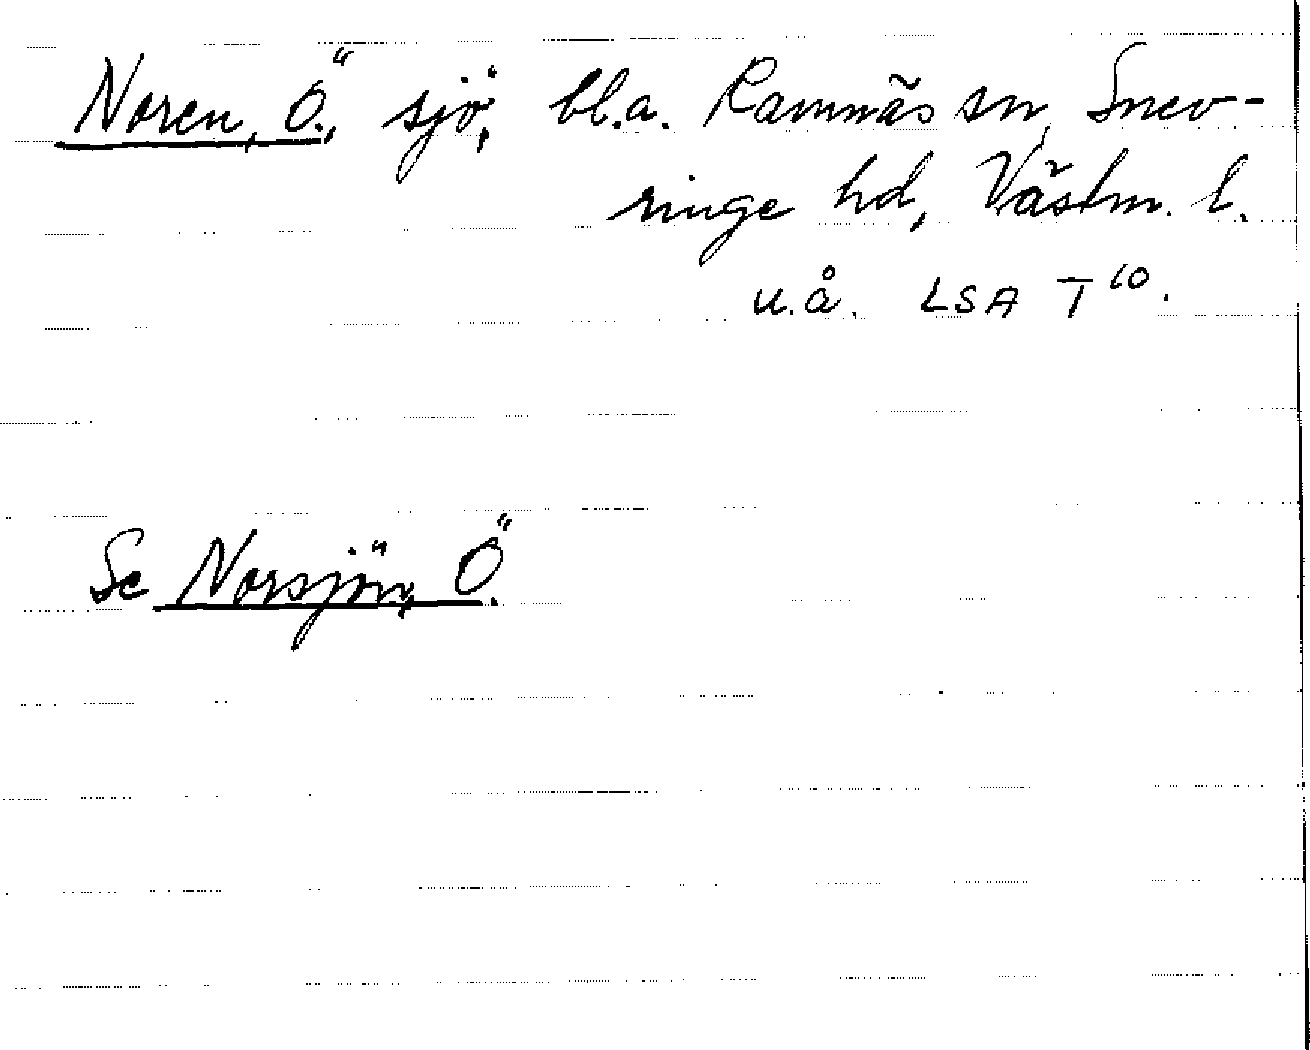 Noren, Ö., sjö, bl.a. Ramnäs sn, Snev-
ringe hd, Västm. l.
u.å. LSA T 10.
Se Norsjön, Ö.